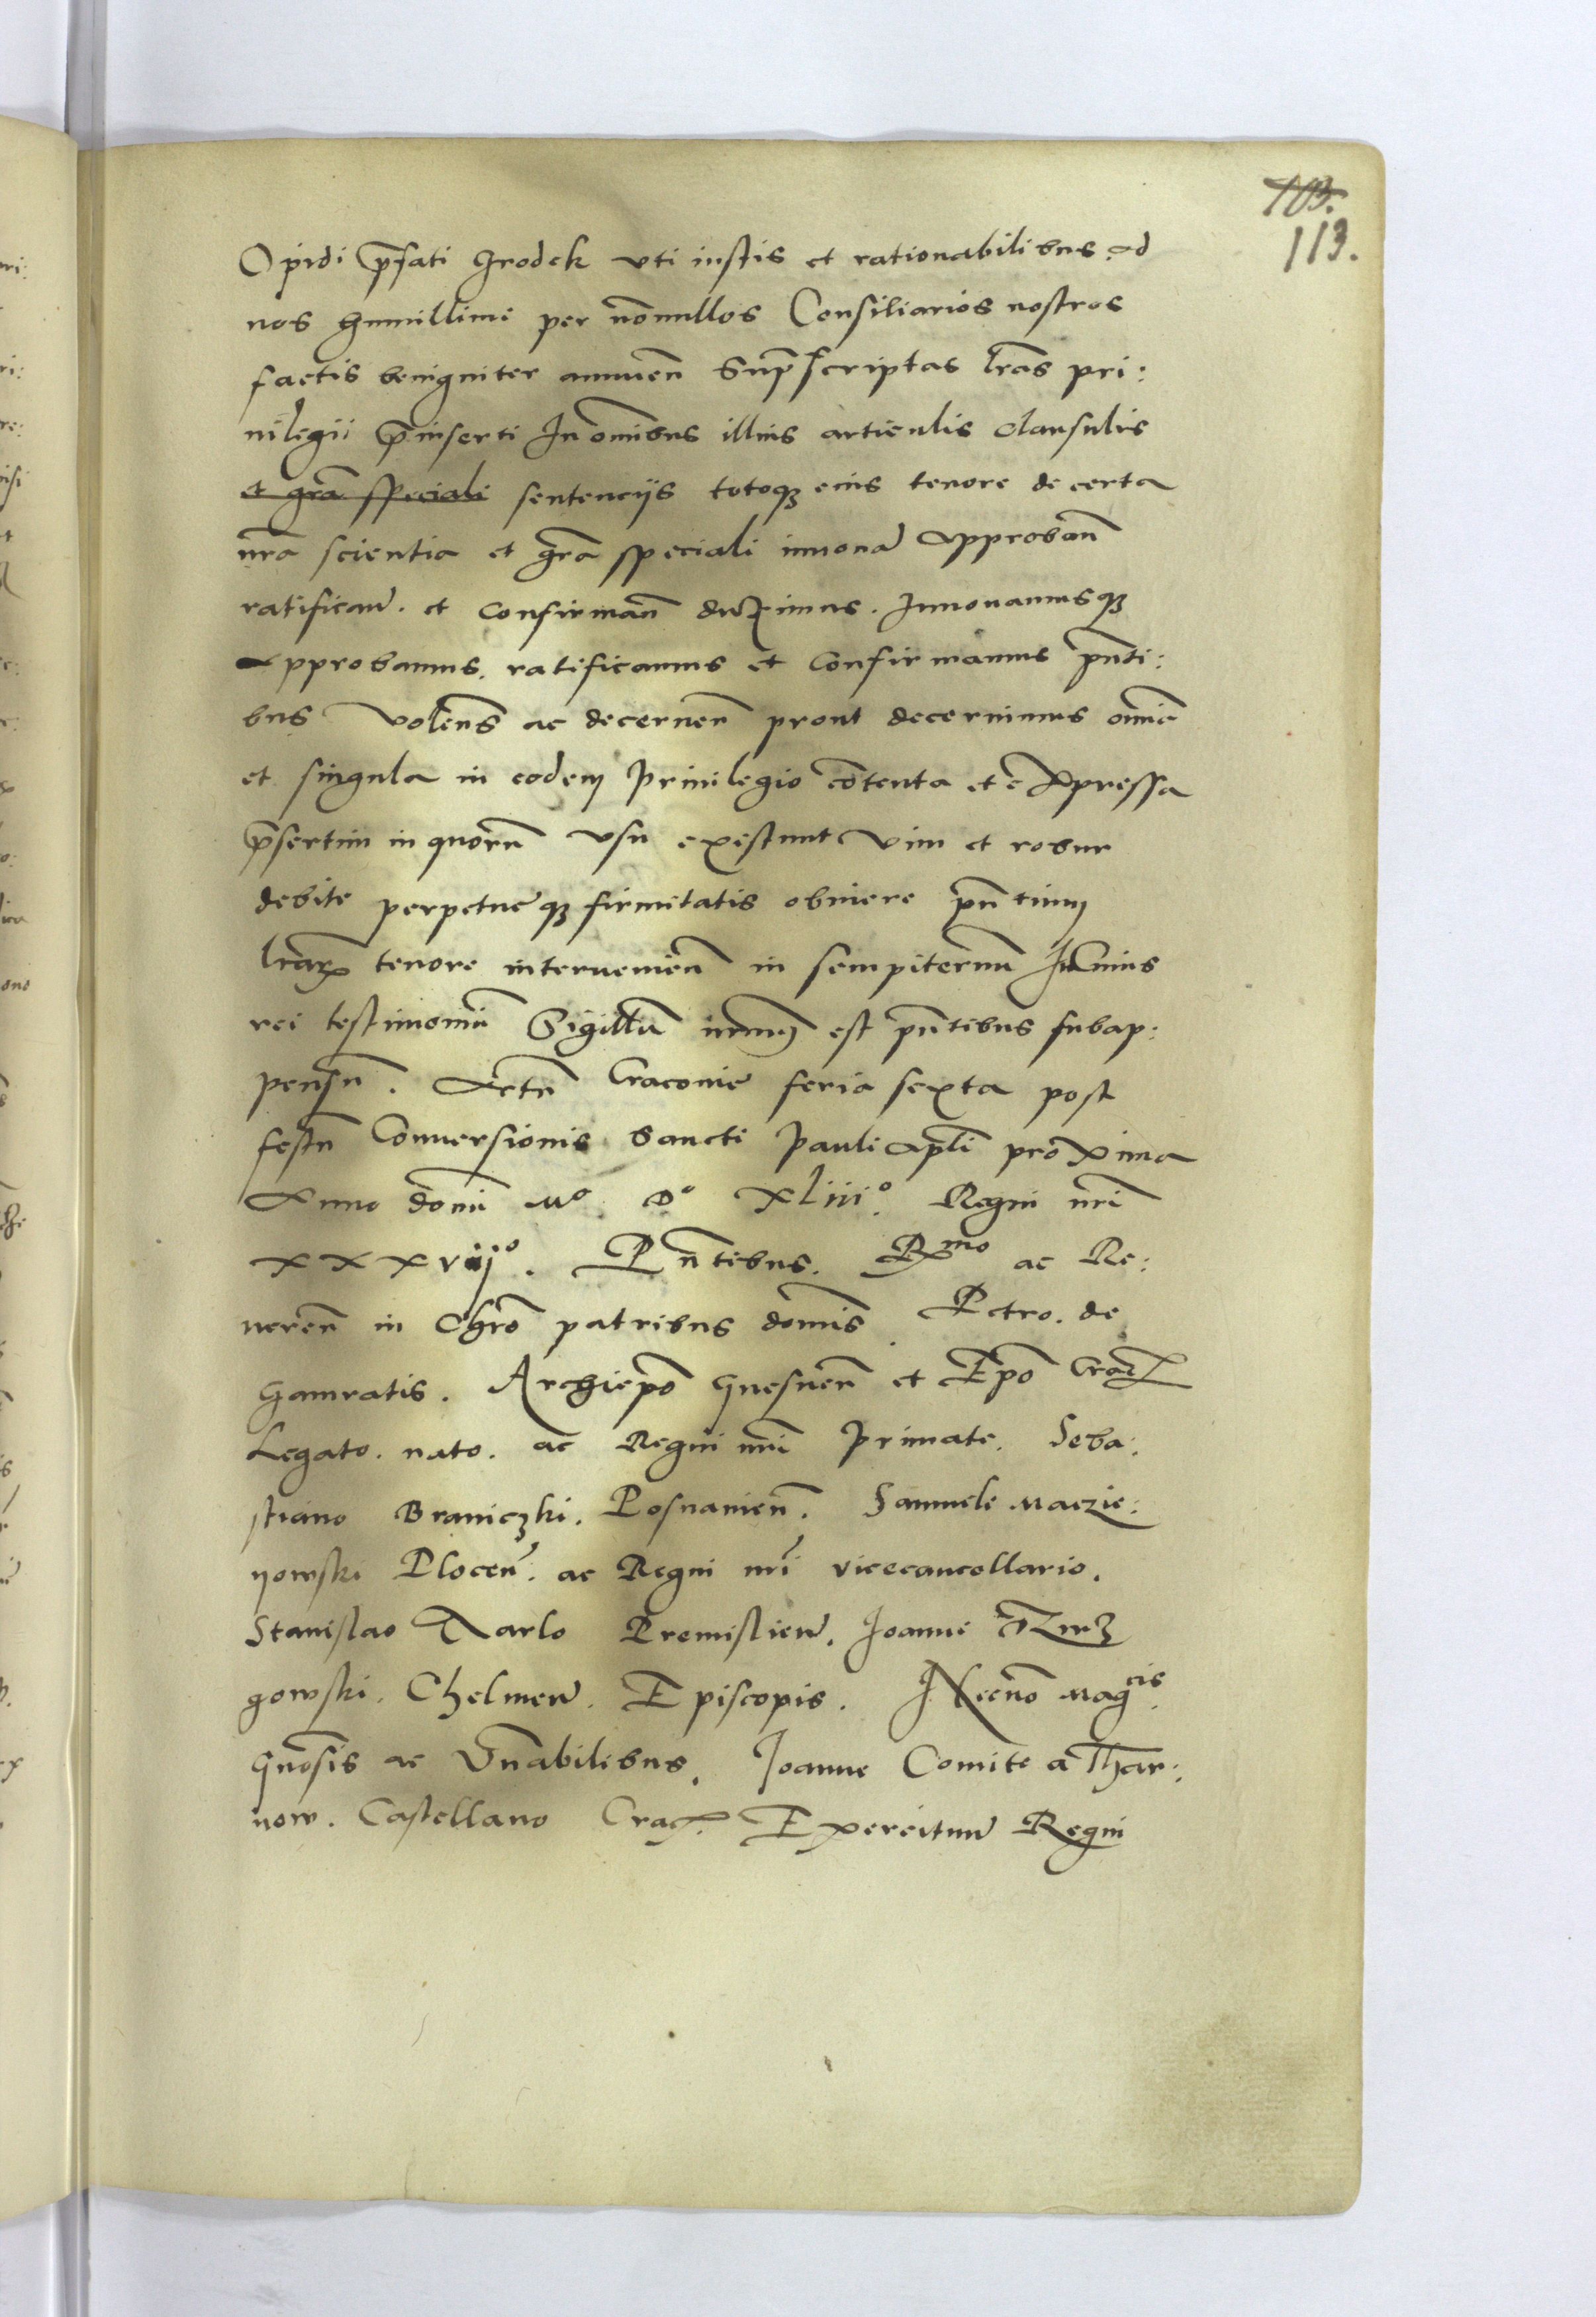 103.
113.
Opidi p̄fati Grodek vti iustis et rationabilibus ad
nos humillime per nōnullos Consiliarios nostros
factis benigniter annuen̄ Sup̄scriptas lr̄as pri:
uilegii p̄inserti In om̄ibus illius articulis clausulis
et gr̄a speciali sentencijs totoq₃ eius tenore de certa
nr̄a scientia et gr̄a speciali innouan̄ approban̄
ratifican̄. et confirman̄ duximus. Innouamusq₃
approbamus. ratificamus et confirmamus pn̄ti:
bus Volen̄s ac decernen̄ prout decernimus omnia
et singula in eodem Priuilegio cōtenta et expressa
p̄sertim in quorū vsu existunt vim et robur
debite perpetueq₃ firmitatis obtinere pn̄tium
lr̄arꝝ tenore interuenien̄ in sempiternū In Cuius
rei testimoniū Sigillū nr̄um est pn̄tibus subap:
pensū. Actū Cracouie feria sexta post
festū Conuersionis Sancti Pauli apl̄i proxima
Anno domī Mº Dº XLiiiº. Regni nr̄i
xxxviijº. Pn̄tibus. Rx̄mo ac Re:
ueren̄ in Chr̄o patribus domīs Petro. de
Gamratis. Archiepō Gnesnen̄ et Epō Crac̄
Legato. nato. ac Regni nr̄i Primate. Seba:
stiano Braniczki. Posnanien̄. Samuele Maczie:
yowski Plocen̄. ac Regni nr̄i vicecancellario.
Stanislao Tarlo Premislien̄. Joanne Dzierz
gowski. Chelmen̄. Episcopis. Necnō Mag^cis
Gn̄osis ac Vn̄abilibus. Joanne Comite a Thar:
now. Castellano Crac̄. Exercituum Regni